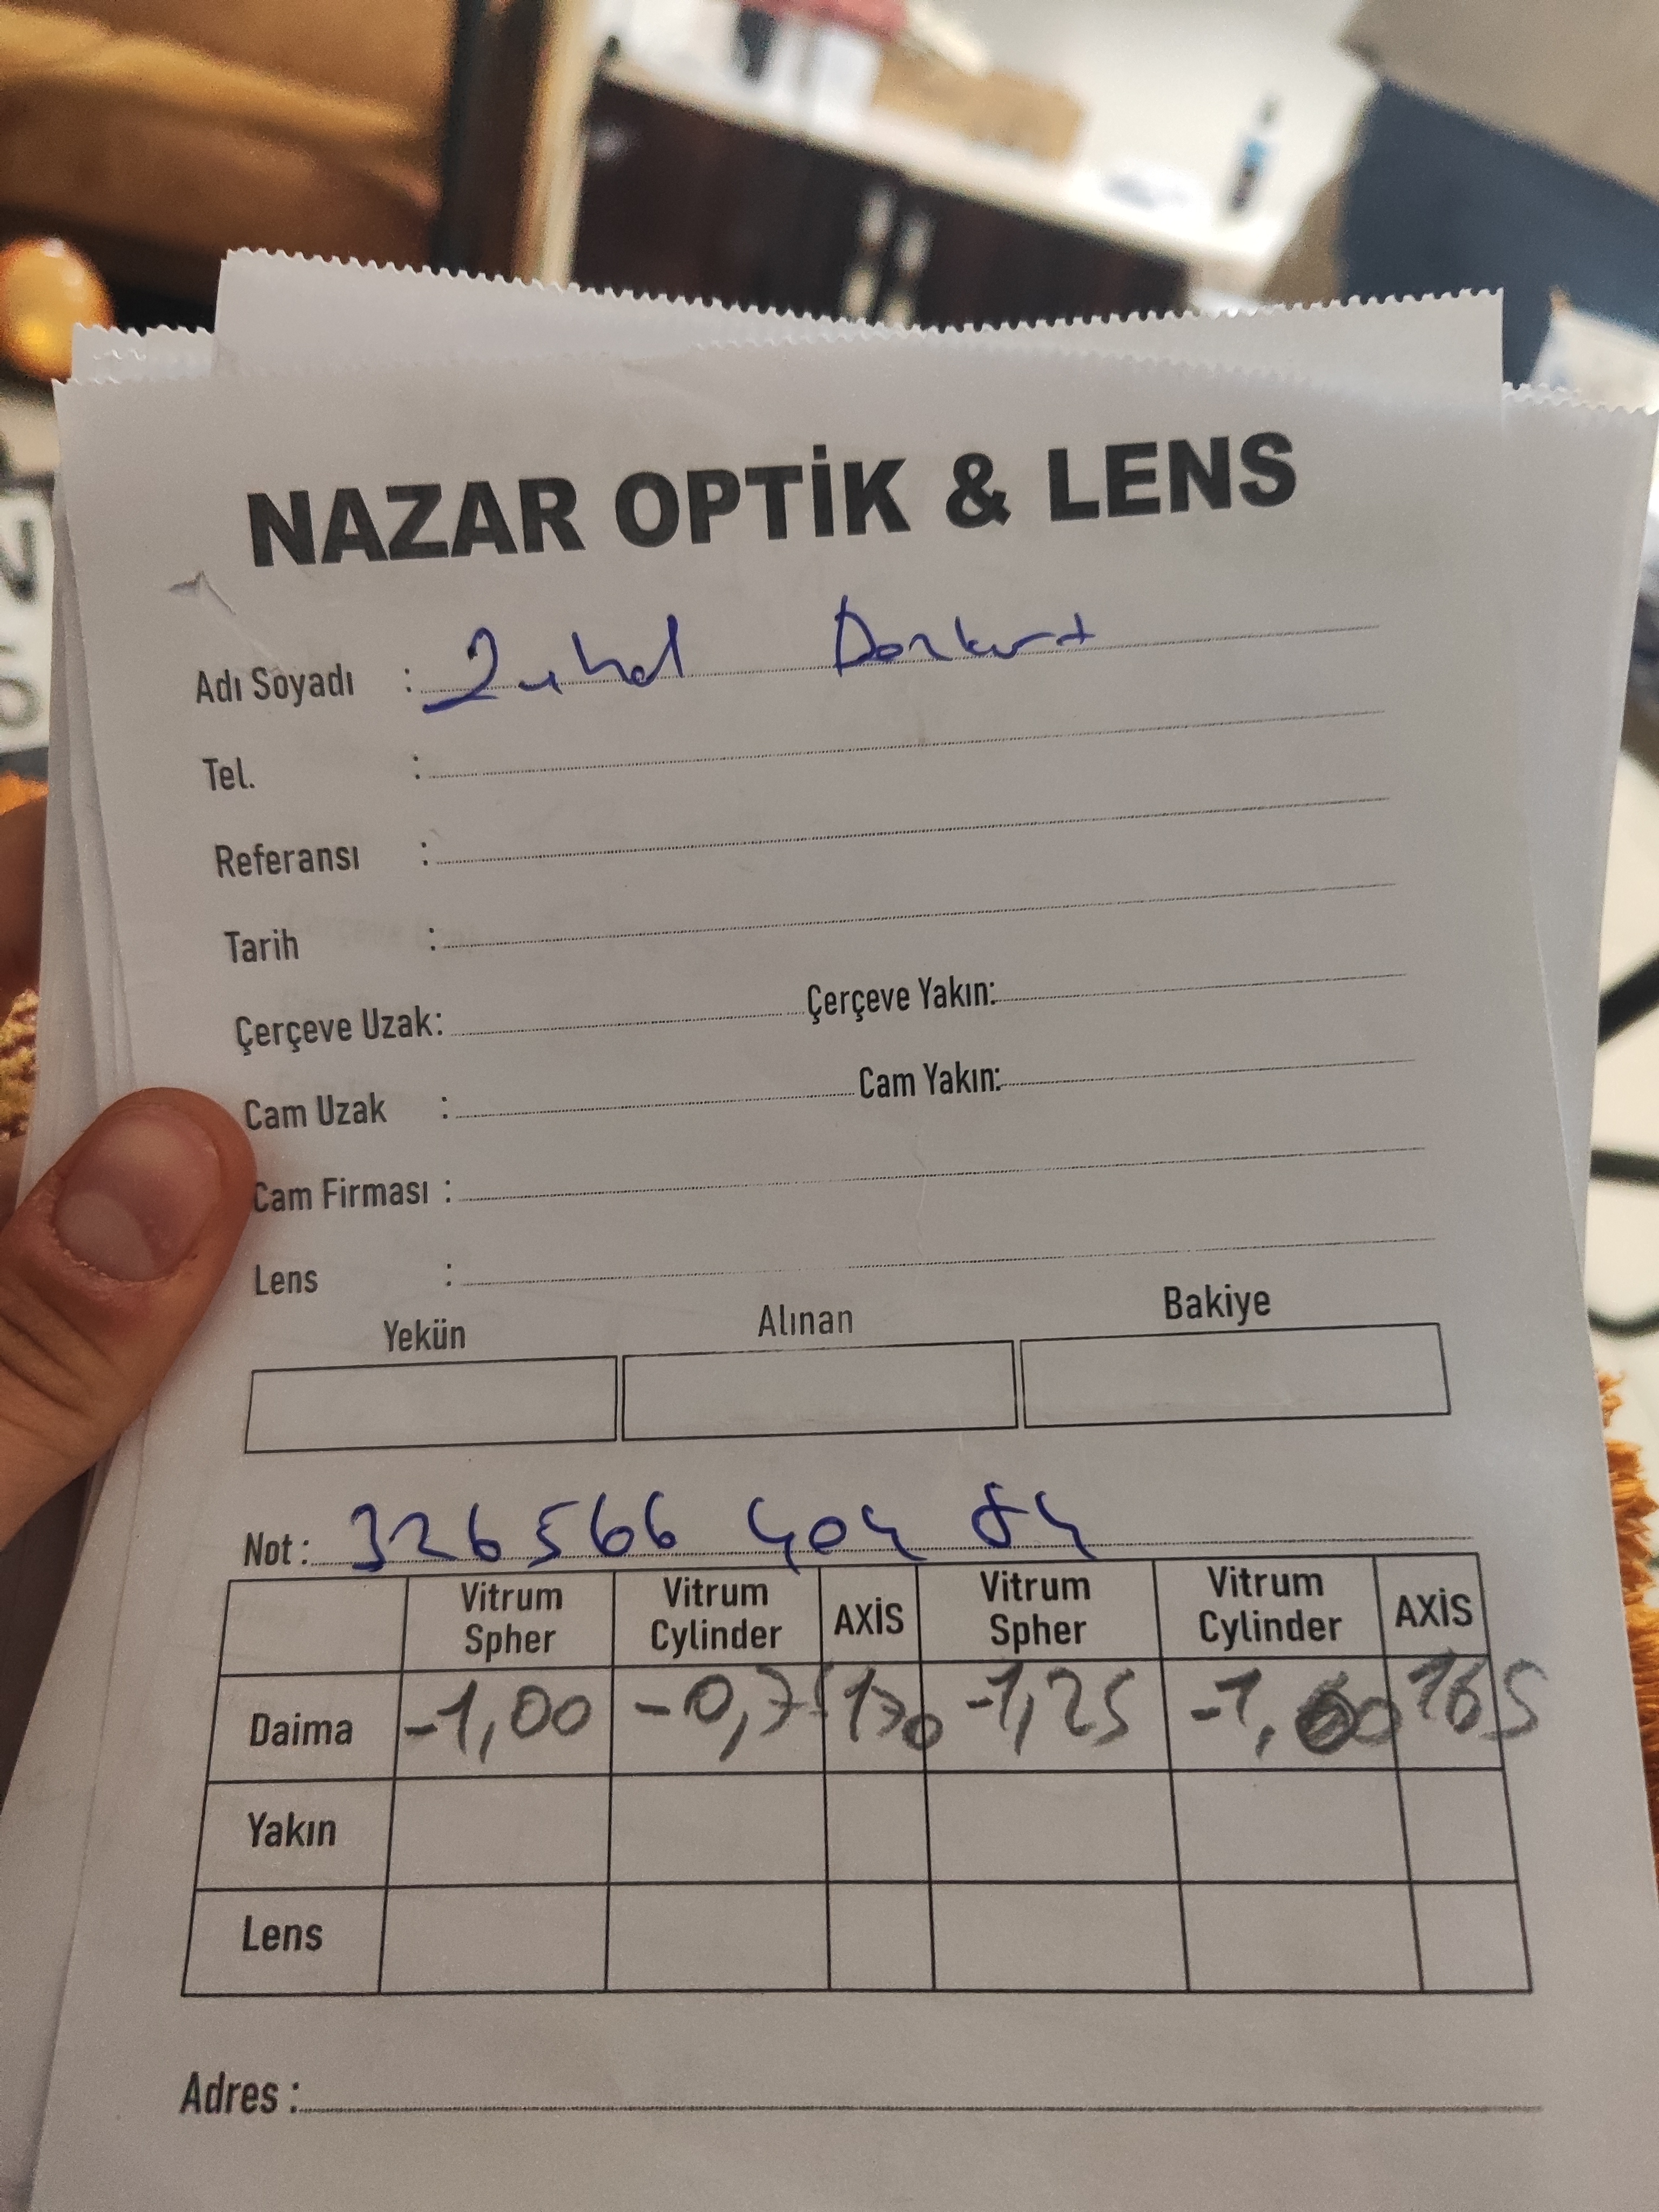 NAZAR OPTİK & LENS
Adı Soyadı : Zuhal
Tel. :
Referansı :
Tarih :
Çerçeve Uzak: Çerçeve Yakın:
Cam Uzak : Cam Yakın:
Cam Firması :
Lens :
Yekün Alınan Bakiye
Not: 326566 404 84
Vitrum Spher Vitrum Cylinder AXİS Vitrum Spher Vitrum Cylinder AXİS
Daima -1,00 -0,75 170 -1,25 165
Yakın
Lens
Adres :